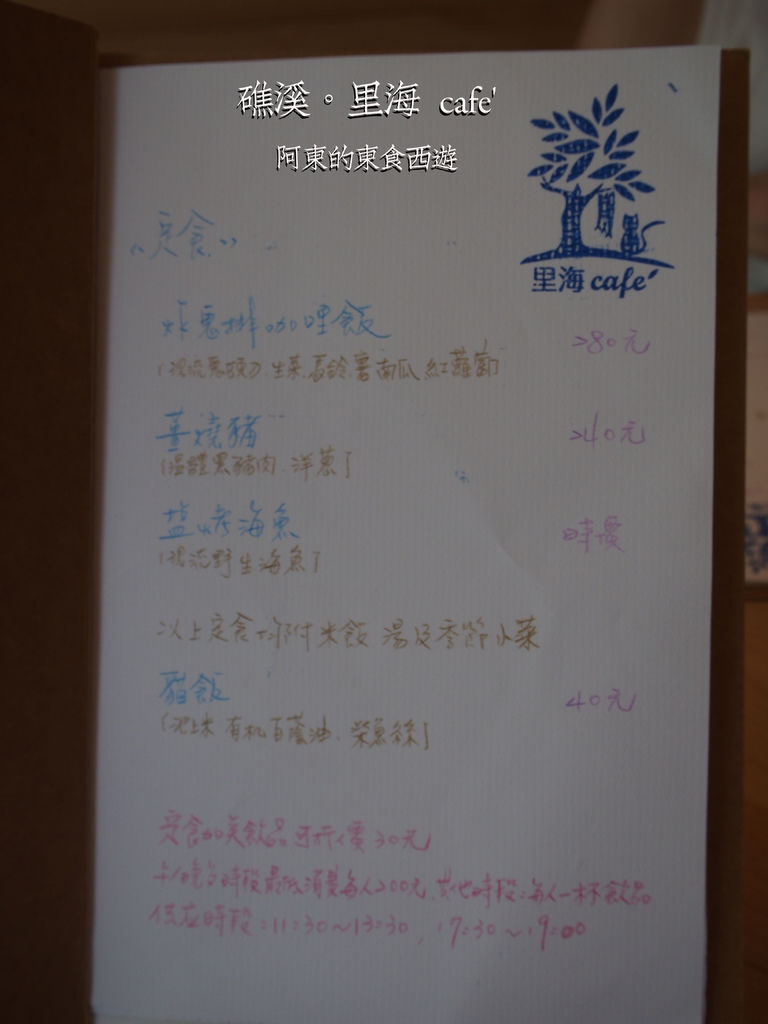 礁溪。里海 cafe'
阿東的東食西遊
里海 cafe'
"定食"
炸鬼排咖哩飯 280元
(現流鬼頭刀.生菜.馬鈴薯.南瓜.紅蘿蔔)
薑燒豬 240元
(溫體黑豬肉.洋蔥)
盐烤海魚 時價
(現流野生海魚)
以上定食均附米飯 湯及季節小菜
貓飯 40元
(池上米 有机百蔭油.柴魚絲)
定食加點飲品可折價30元
午/晚餐時段最低消費每人200元.其他時段:每人一杯飲品
供应時段:11:30~13:30, 17:30~19:00